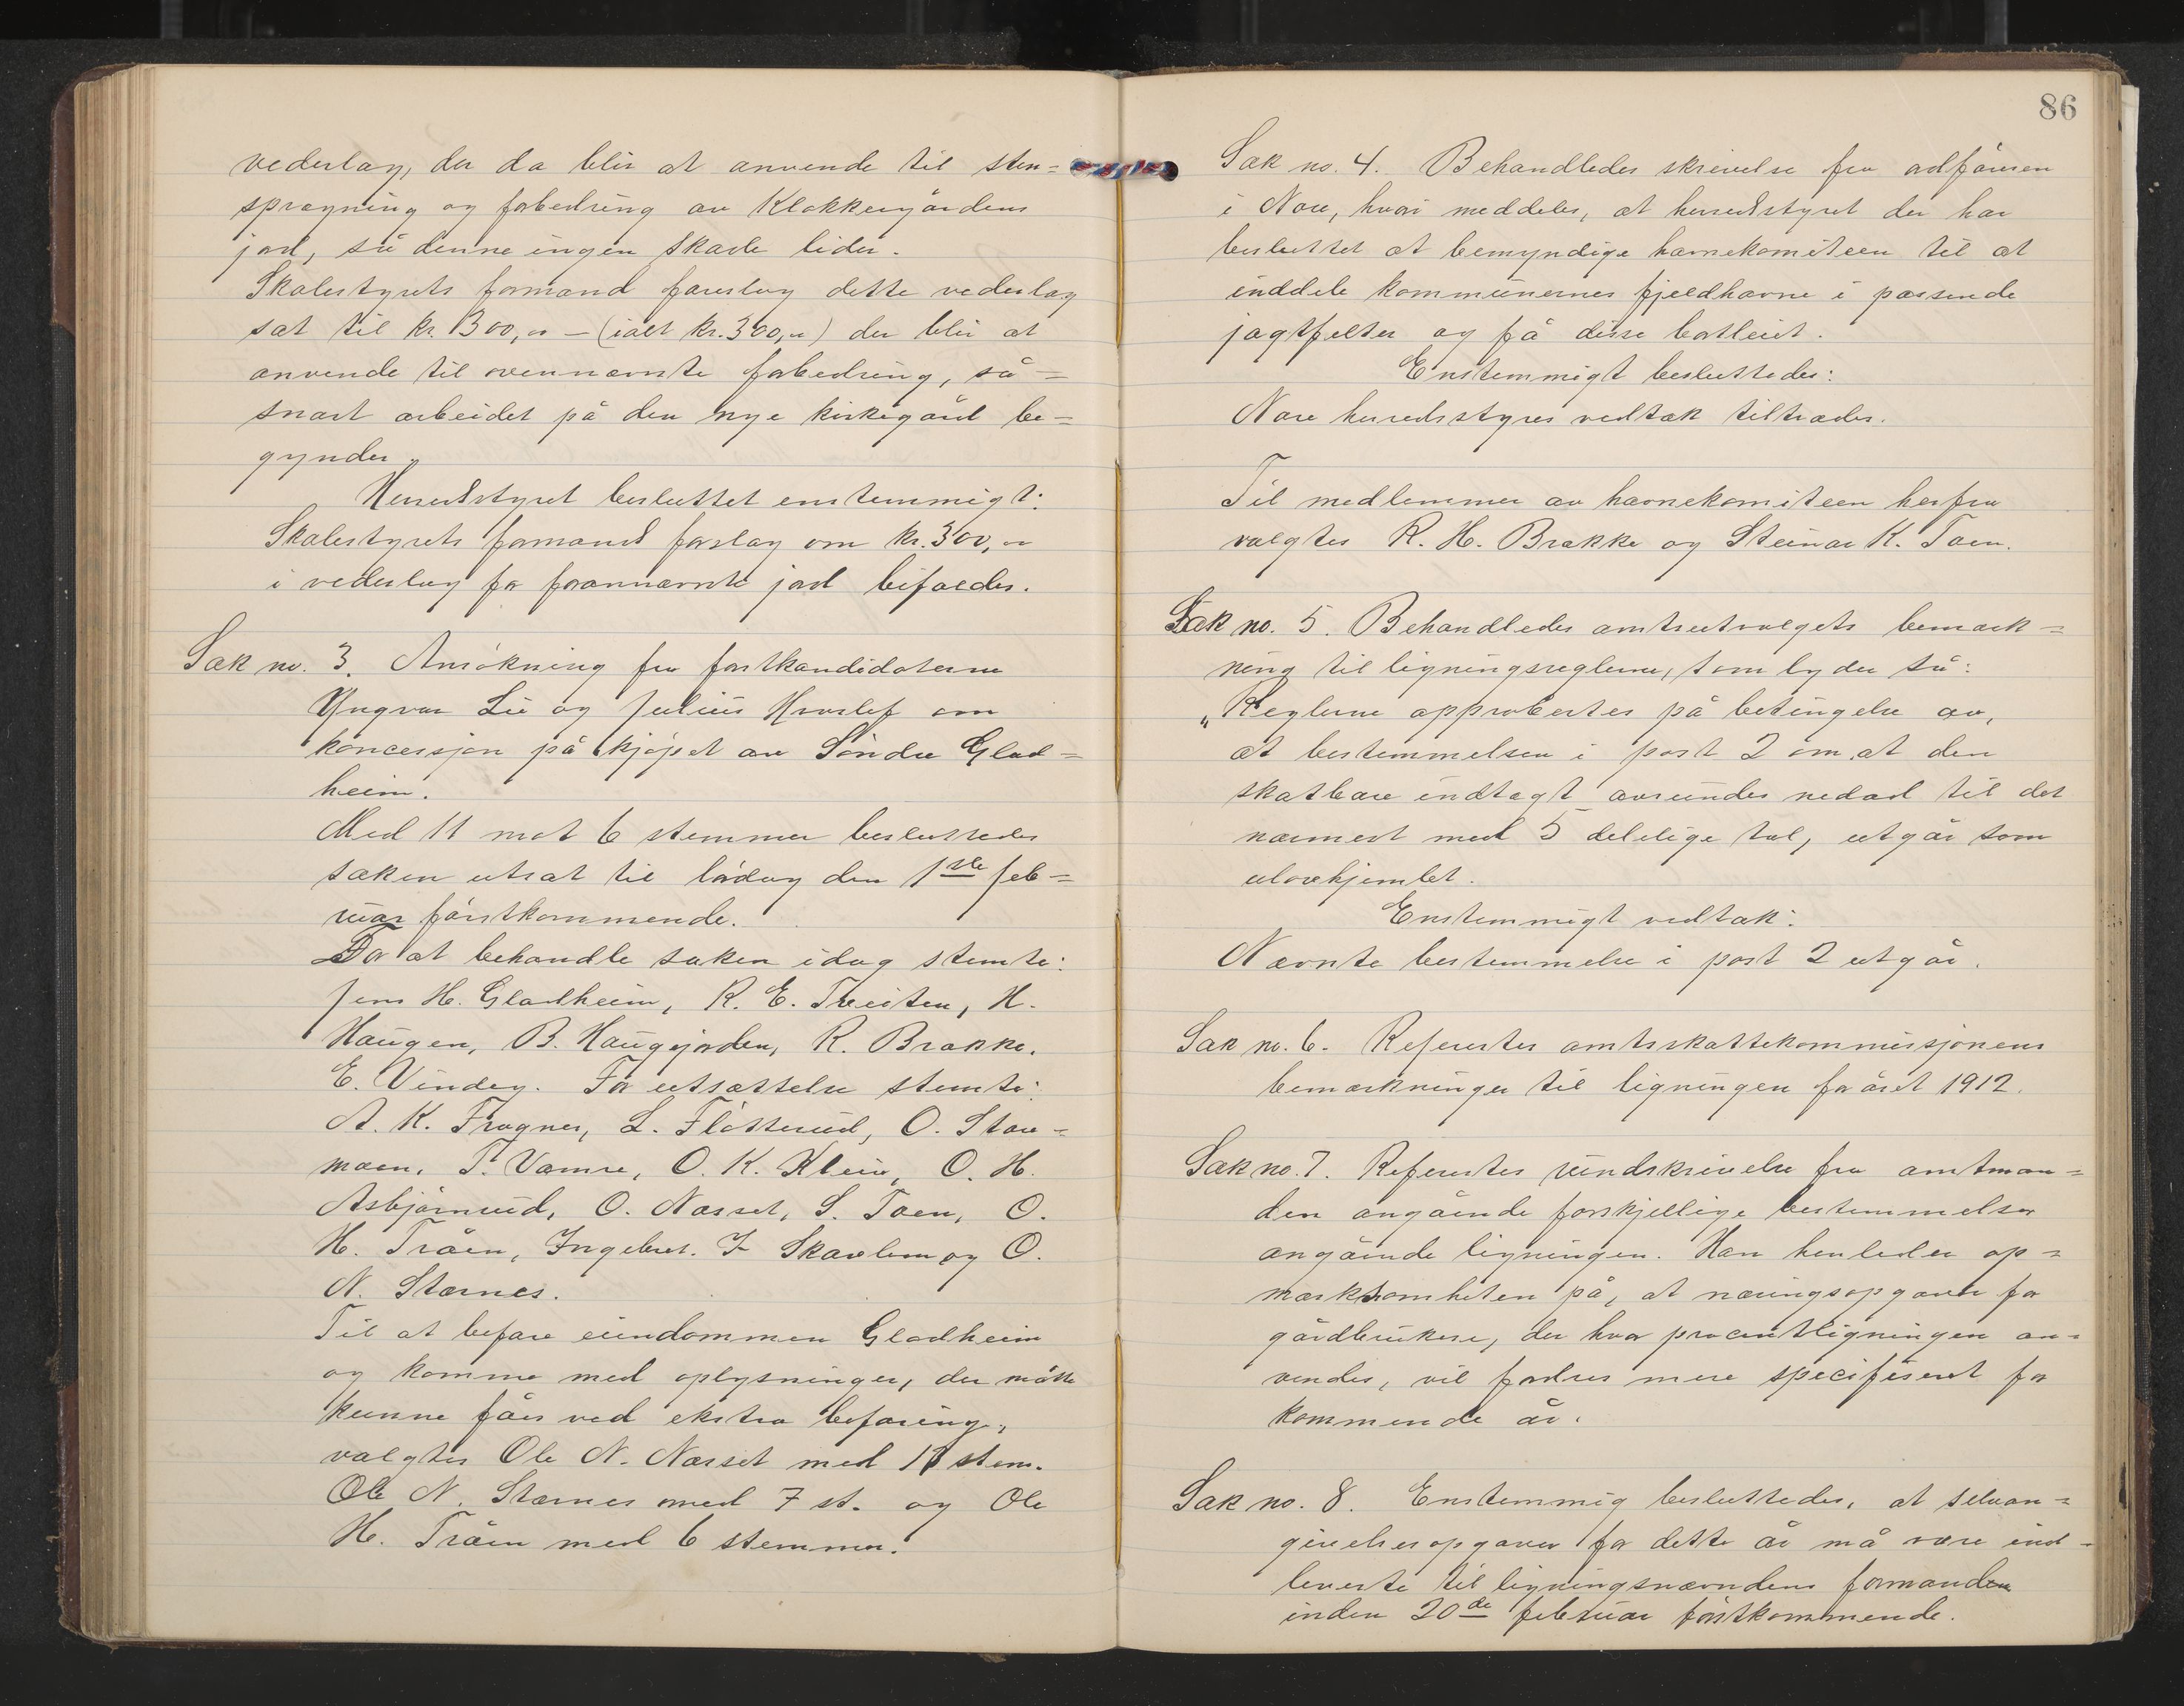 vederlag, der da blir at anvende til sten=
sprægning og forbedring av Klokkergårdens
jord, så denne ingen skade lider.
Skolestyrets formand foreslog dette vederlag
sat til kr. 300,00 – (ialt kr. 300,00) der blir at
anvende til ovennævnte forbedring, så=
snart arbeidet på den nye kirkegård be=
gynder.
Herredsstyret besluttet enstemmigt:
Skolestyrets formands forslag om kr. 300,00
i vederlag for forannævnte jord bifaldes.
Sak no. 3. Ansökning fra forstkandidaterne
Yngvar Lie og Julius Hvoslef om
koncessjon på kjöpet av Söndre Glad=
heim.
Med 11 mot 6 stemmer besluttedes
saken utsat til lördag den 1ste feb=
ruar förstkommende.
For at behandle saken idag stemte:
Jens H. Gladheim, R. E. Treiten, H.
Haugen, B. Haugejorden, R. Brække,
E. Vindeg. For utsættelse stemte:
A. K. Frogner, L. Flötterud, O. Stor=
moen, T. Vamre, O. K. Kleiv, O. H.
Asbjörnrud, O. Næsset, S. Toen, O.
H. Tråen, Ingebret. I Skavlem og O.
N. Stærnes.
Til at befare eiendommen Gladheim
og komme med oplysninger, der måtte
kunne fåes ved ekstra befaring,
valgtes Ole N. Næsset med 11 stem.
Ole N. Stærnes med 7 st. og Ole
H. Tråen med 6 stemmer.
86
Sak no. 4. Behandledes skrivelse fra ordföreren
i Nore, hvori meddeles, at herredsstyret der har
besluttet at bemyndige havnekomiteen til at
inddele kommunernes fjeldhavne i passende
jagtfelter og få disse bortleiet.
Enstemmigt besluttedes:
Nore herredsstyres vedtak tiltrædes.
Til medlemmer av havnekomiteen herfra
valgtes R. H. Brække og Steinar K. Toen.
Sak no. 5. Behandledes amtsutvalgets bemærk=
ning til ligningsreglerne, som lyder så:
„Reglerne approbertes på betingelse av,
at bestemmelsen i post 2 om, at den
skatbare indtægt avrundes nedad til det
nærmest med 5 delelige tal, utgår som
ulovhjemlet.
Enstemmigt vedtak:
Nævnte bestemmelse i post 2 utgår.
Sak no. 6. Refertes amtsskattekommissjonens
bemærkninger til ligningen for året 1912.
Sak no. 7. Refertes rundskrivelse fra amtman=
den angående forskjellige bestemmelser
angående ligningen. Han henleder op=
mærksomheten på, at næringsopgaver for
gårdbrukere, der hvor procentligningen an=
vendes, vil fordres mere specifiseret for
kommende år.
Sak no. 8. Enstemmig besluttedes, at selvan=
givelsesopgaver for dette år må være ind=
leverte til ligningsnævndens formanden
inden 20de februar förstkommende.